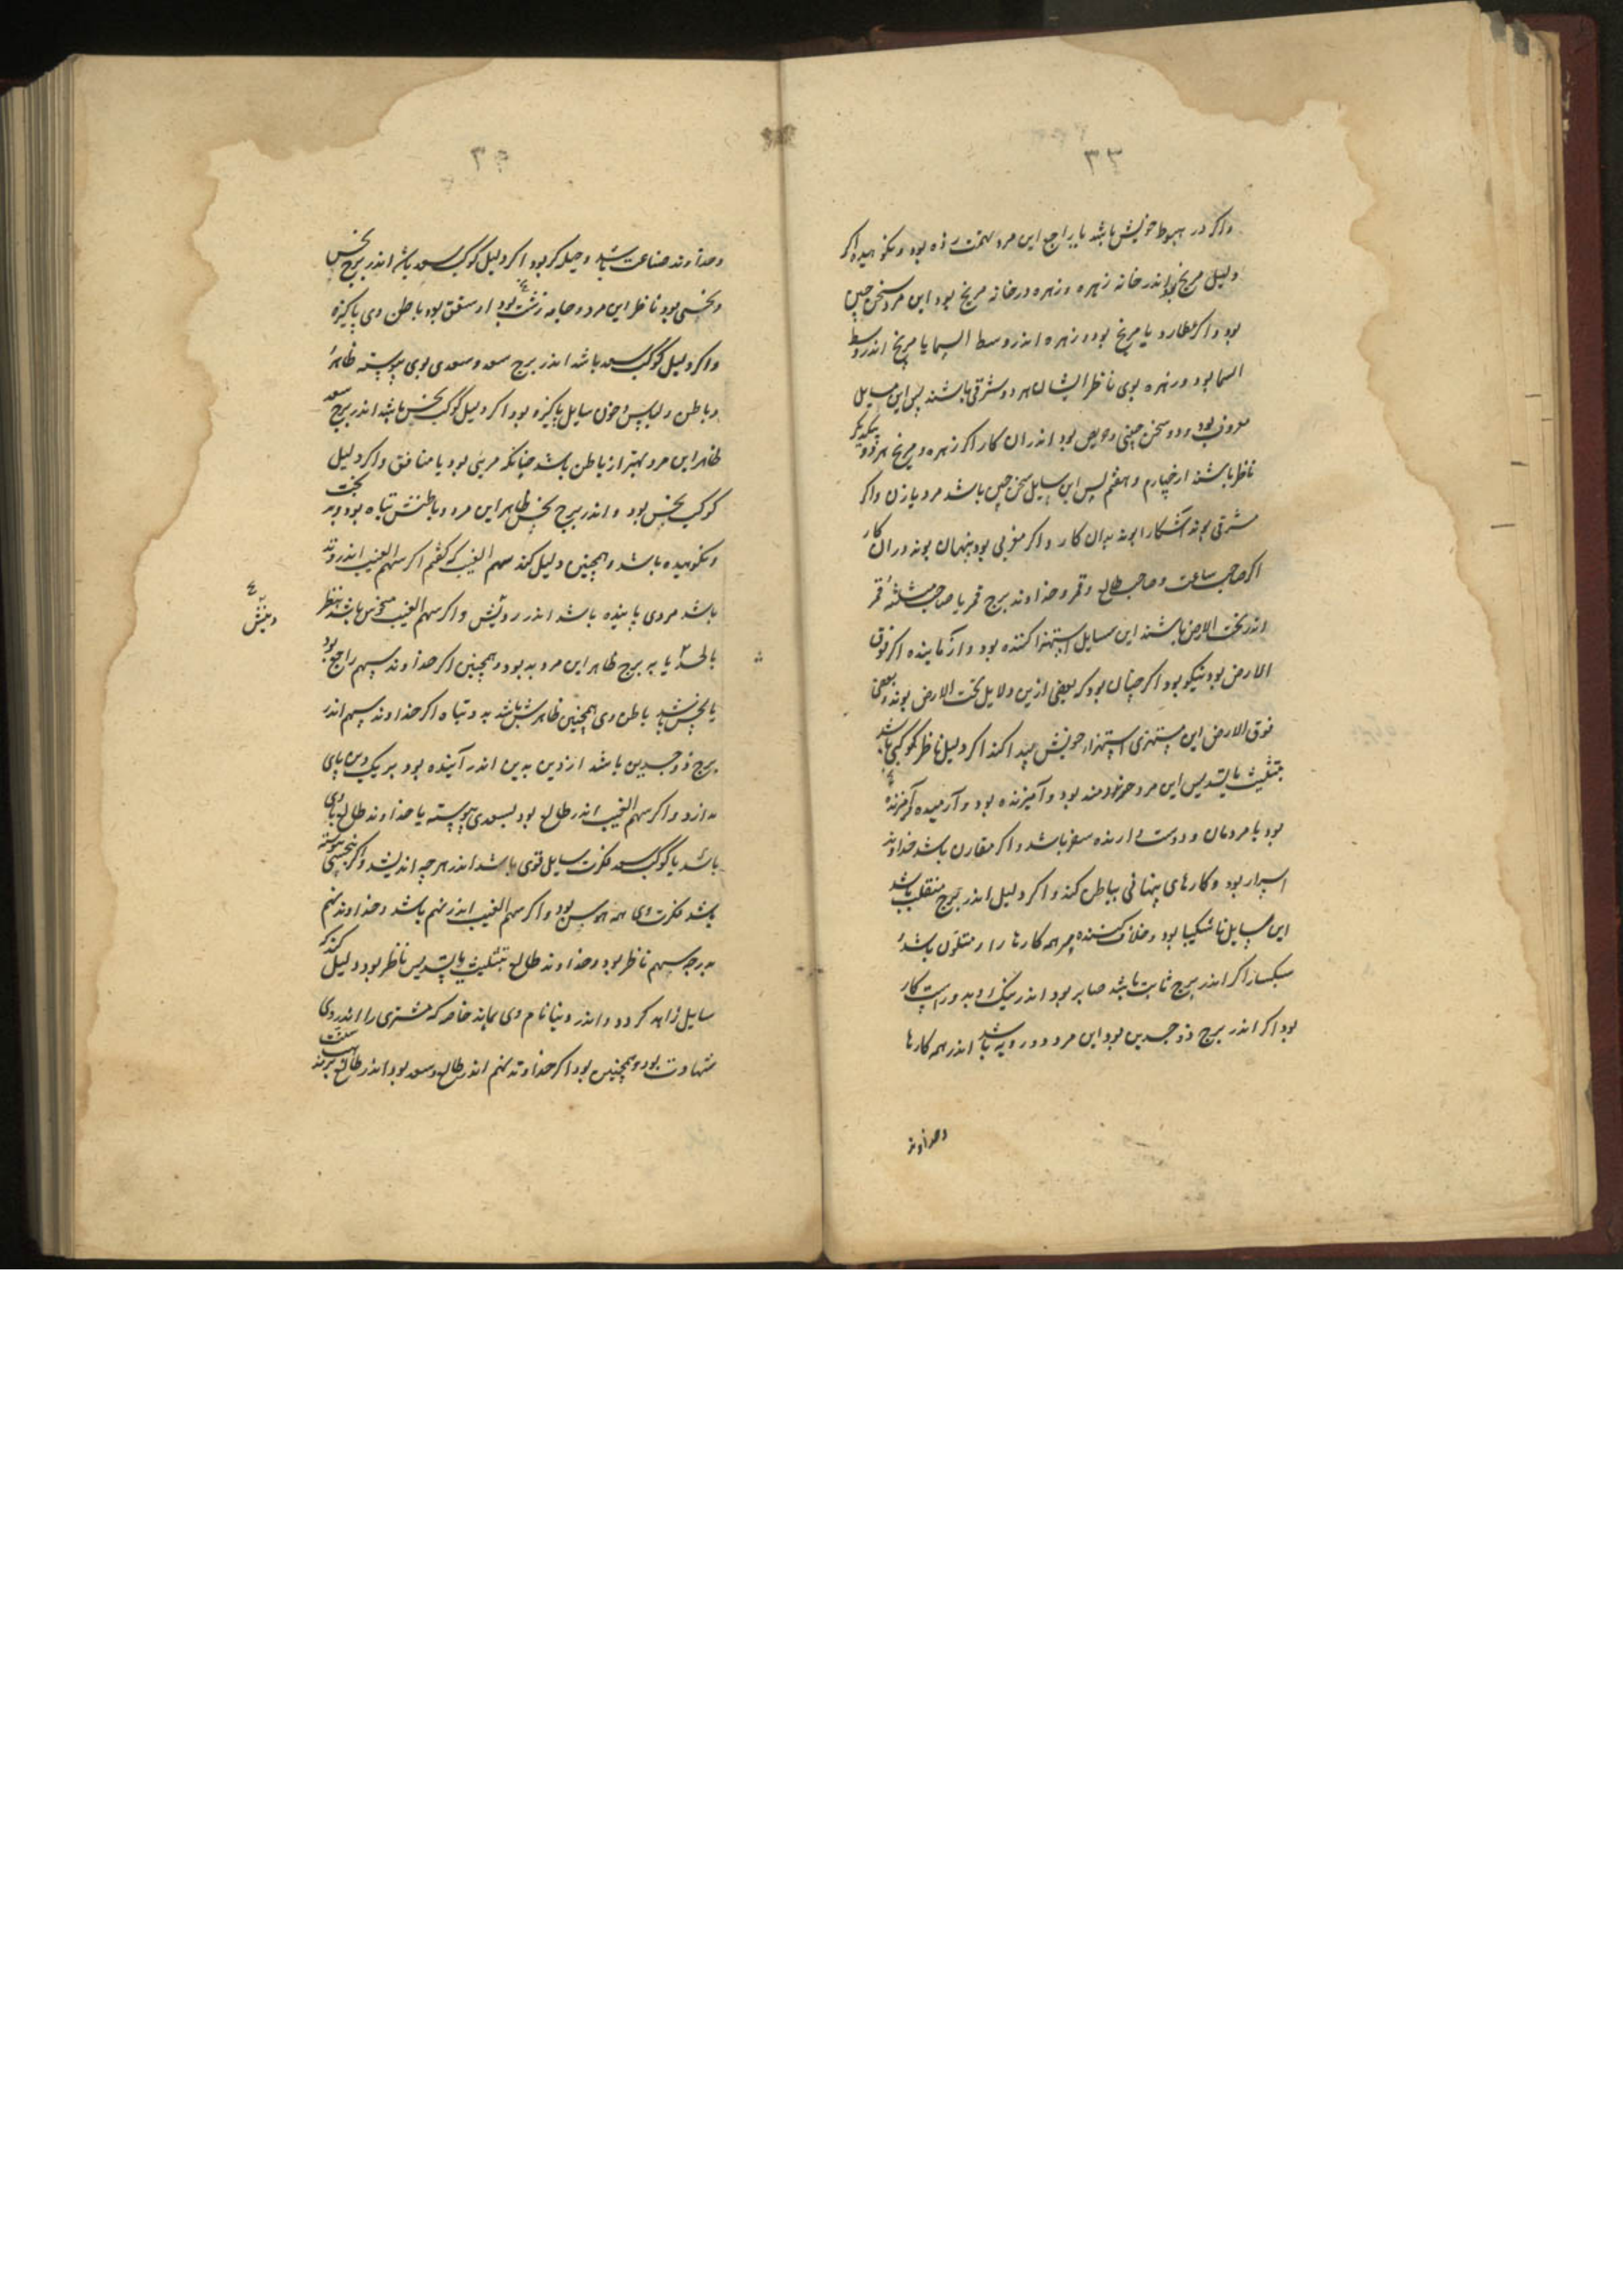 ۳۳
واکر در هبوط خویش باشد یا راجع این مرد تهمت زده بود و نکوهیده اکر
دلیل مریخ بود اندر خانه زهره و زهره در خانه مریخ بود این مرد سخن چین
بود واکر عطارد یا مریخ بود و زهره اندر وسط السما یا مریخ اندر وسط
السما بود و زهره بوی ناظر ایشان هر دو مشرقی باشند پس این سایل
معروف بود و دو سخن چینی و حریص بود اندران کار اکر زهره و مریخ هر دو بیکدیکر
ناظر باشند از چهارم و هفتم پس این سایل سخن چین باشد مرد یا زن واکر
مشرقی بوند آشکارا بوند بدان کار واکر مغربی بود پنهان بوند دران کار
اکر صاحب ساعت و صاحب طالع و قمر و خداوند برج قمر یا صاحب مثلثهٔ قمر
اندر تحت الارض باشند این سایل استهزا کننده بود و آزماینده اکر فوق
الارض بود نیکو بود اکر چنان بود که بعضی ازین دلایل تحت الارض بوند و بعضی
فوق الارض این مستهزی استهزاء خویش پیدا کند اکر دلیل ناظر بکوکبی باشد
بتثلیث یا تسدیس این مرد خردمند بود و آمیزنده بود و آرمیده
بود با مردمان و دوست دارنده سفر باشد واکر مقارن باشد خداوند
اسرار بود و کارهای پنهانی بباطن کند واکر دلیل اندر برج منقلب باشد
این سایل ناشکیبا بود و خلاف کننده مر همه کارها را و متلون باشد و
سبکسار اکر اندر برج ثابت باشد صابر بود اندر نیک و بد و راست کار
بود اکر اندر برج ذو جسدین بود این مرد دو رویه باشد اندر همه کارها
وخداوند
وخداوند صناعت باشد و حیله کر بود اکر دلیل کوکب سعد باشد اندر برج نحس
و نحسی بود ناظر این مرد و جامه زشت بود باطن وی پاکیزه
واکر دلیل کوکب سعد باشد اندر برج سعد و سعدی بوی پیوسته ظاهر
و باطن و لباس و خوی سایل پاکیزه بود اکر دلیل کوکب نحس باشد اندر برج سعد
ظاهر این مرد بهتر از باطن باشد چنانکه مرایی بود یا منافق واکر دلیل
کوکب نحس بود و اندر برج نحس ظاهر این مرد و باطنش تباه بود
ونکوهیده باشد و همچنین دلیل کند سهم الغیب که کفتم اکر سهم الغیب اندر وتد
باشد مردی پاینده باشد اندر و اکر سهم الغیب منحوس باشد بنظر
یا به برج ظاهر این مرد بد بود و همچنین اکر خداوند سهم راجع بود
یا نحس باشد باطن وی همچنین ظاهرش باشد بد و تباه اکر خداوند سهم اندر
برج ذو جسدین باشد از دین بدین اندر آینده بود بر یک دین پای
ندارد واکر سهم الغیب اندر طالع بود بسعدی پیوسته یا خداوند طالع با وی
باشد یا کوکب سعد فکرت سایل قوی باشد اندر هر چه اندیشد واکر بنحسی پیوسته
باشد فکرت وی همه هوس بود واکر سهم الغیب اندر نهم باشد و خداوند نهم
بدرجه سهم ناظر بود و خداوند طالع بتثلیث یا تسدیس ناظر بود دلیل کند که
سایل زاهد کردد و اندر دنیا نام وی بماند خاصه که مشتری را اندر وی
شهادت بود و همچنین بود اکر خداوند نهم اندر طالع و سعد بود اندر طالع